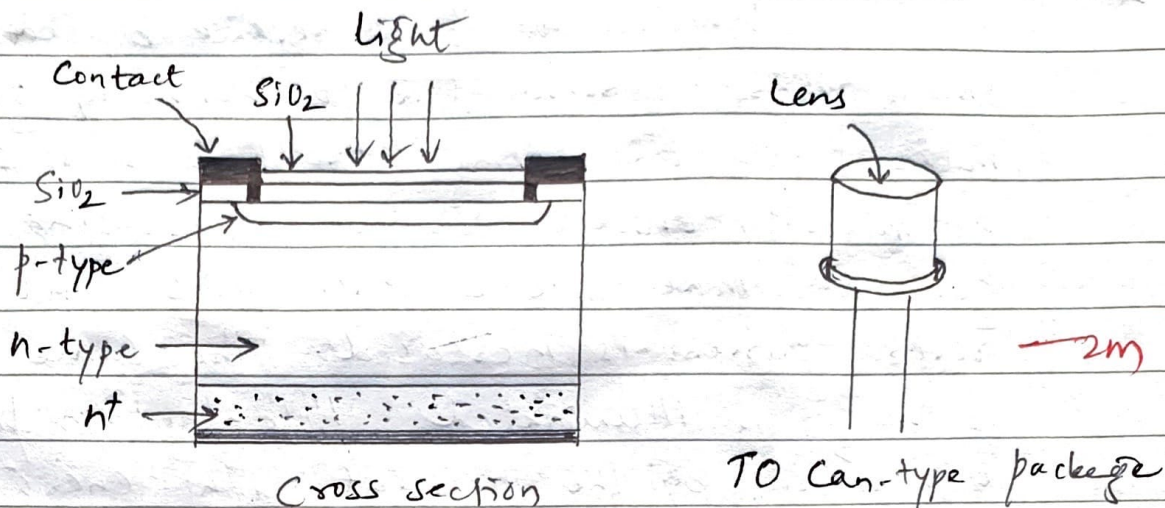 Light
Contact
SiO₂
Lens
SiO₂
p-type
n-type
2m
n⁺
Cross section
TO Can-type package